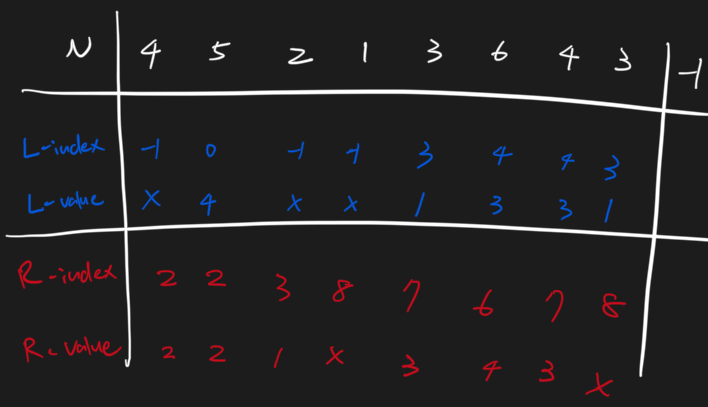 N 4 5 2 1 3 6 4 3 -1
L-index -1 0 -1 -1 3 4 4 3
L-value X 4 x x 1 3 3 1
R-index 2 2 3 8 7 6 7 8
R-value 2 2 1 x 3 4 3 x